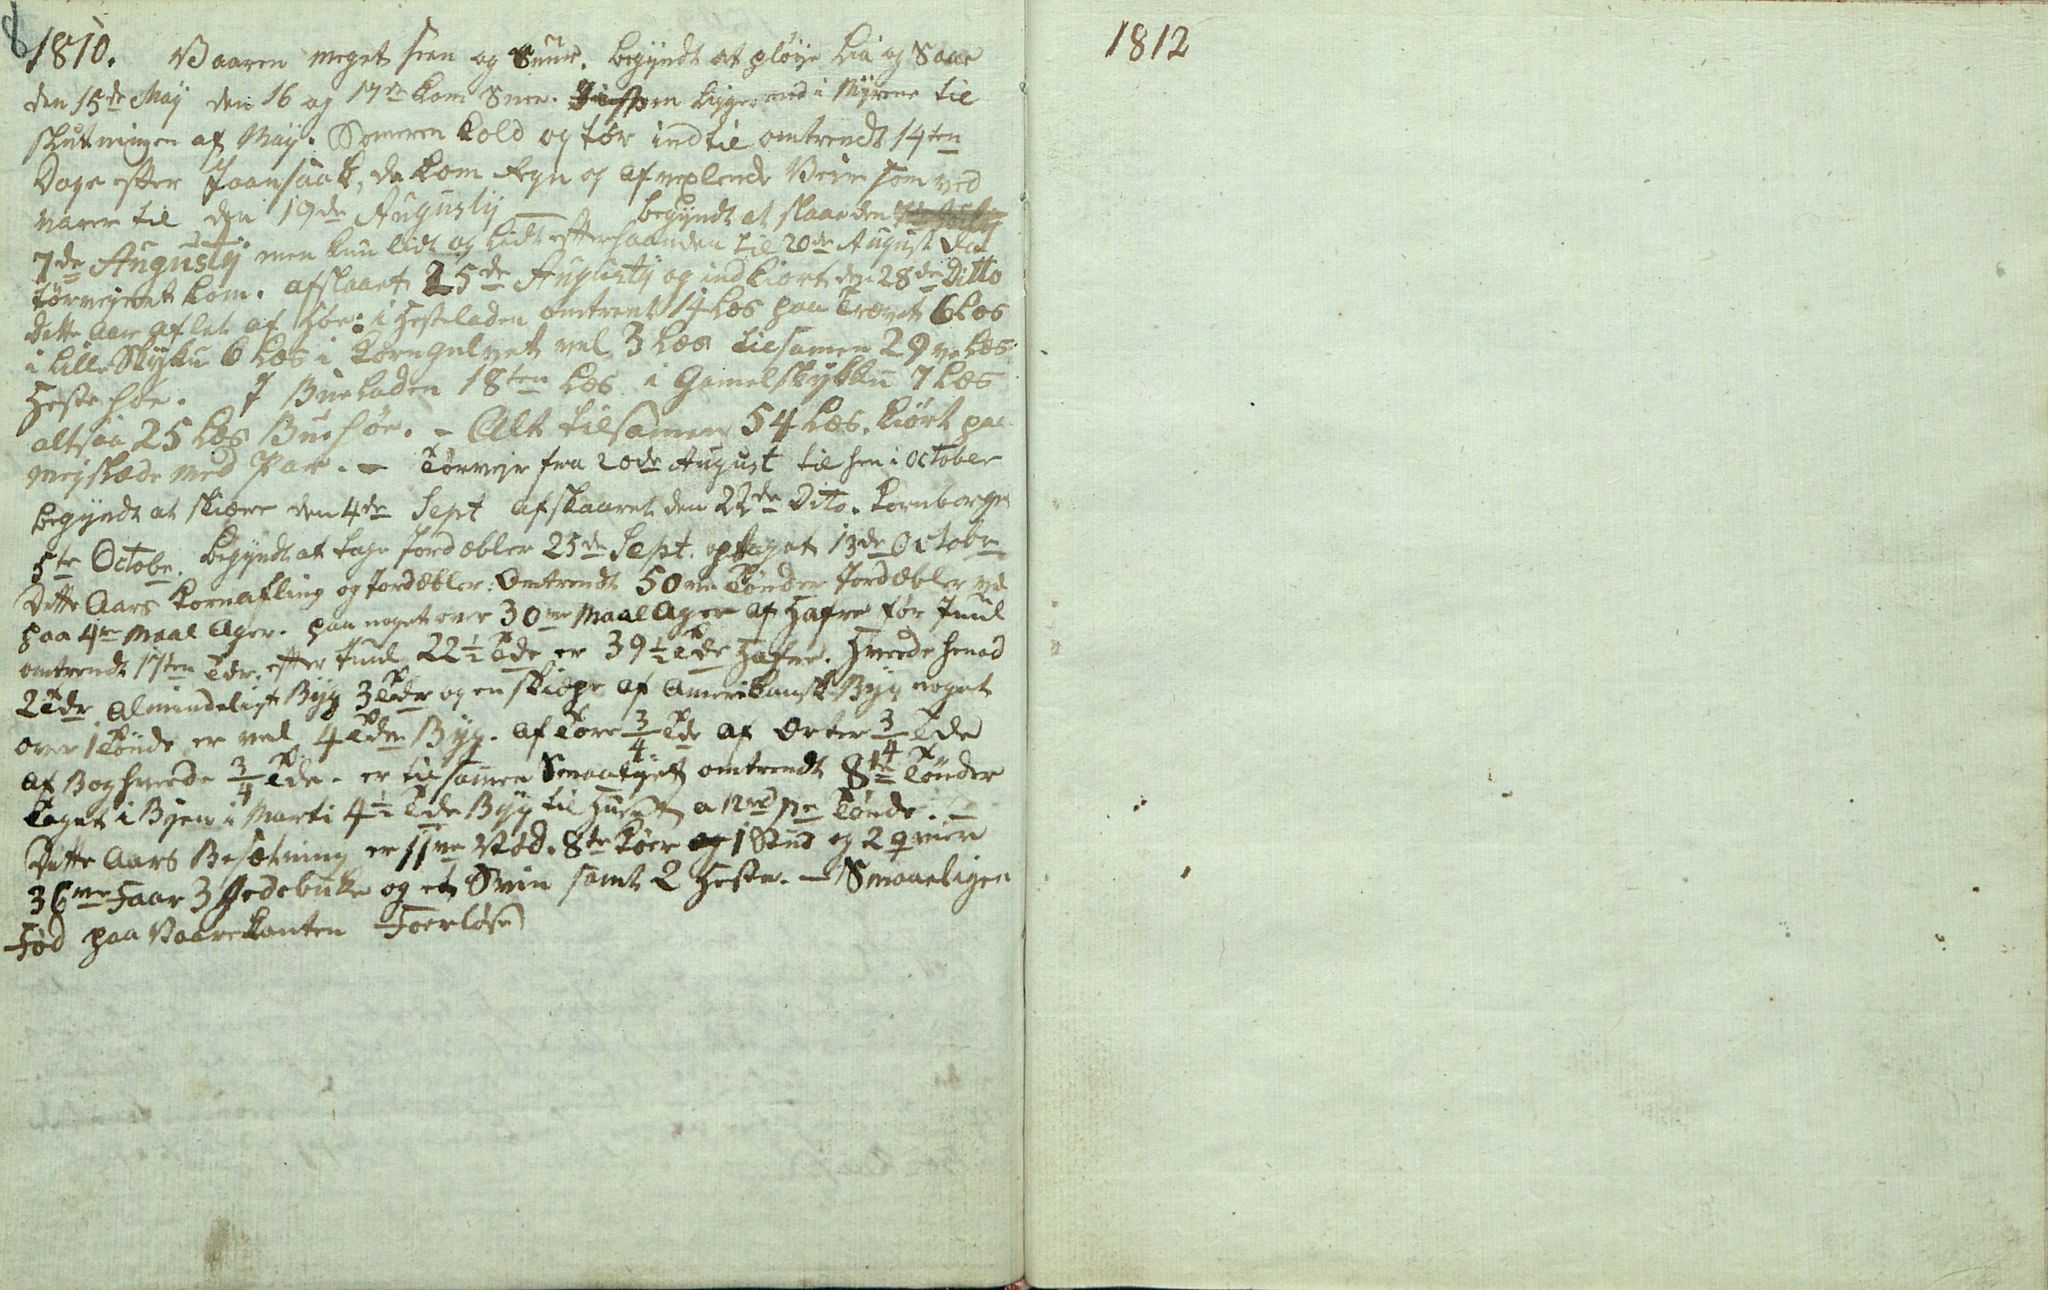 8
1810. Vaaren meget seen og Suur. begyndt at pløye Lia og Saae
den 15de May den 16 og 17de kom Snee. ligger end i Myrene til
slutningen af May. Someren kold og tør indtil omtrendt 14ten
Dage efter Jaansaak, da kom Regn og afvexlende Veir som ved
varer til den 19de Augusty begyndt at slaae den
7de Augusty men kun lidt og lidt efterhaanden til 20de August da
tørveyret kom. afslaaet 25de Augusty og indkiørt den 28de Ditto
Dette Aar aflet af Høe: i Hesteladen omtrent 14 Læs paa Trævet 6 Læs
i Lille Skykku 6 Læs i Korngulvet vel 3 Læs tilsamen 29ve Læs
Hestehøe. I Bueladen 18ten Læs i Gamelskykku 7 Læs
altsaa 25 Læs Buehøe. - Alt tilsamen 54 Læs. kiørt paa
mejslæde med Par. - Tørveyr fra 20de August til hen i October
begyndt at skiære den 4de Sept afskaaret den 22de Dito. kornborge
5te Octobe. begyndt at tage Jordæbler 25de Sept. optaget 13de Octobe
Dette Aars kornafling og Jordæbler: Omtrendt 50ve Tønder Jordæbler
paa 4re Maal Ager. paa noget over 30ve Maal Ager af Hafre før Juul
omtrendt 17ten Tdr. efter Juul 22½ Tde er 39½ Tde Hafre. Hvede henad
2 Tdr Almindeligt Byg 3 Tdr og en skieppe af Amerikansk Byg noget
over 1 Tønde er vel 4 Tder Byg. af Tore 3/4 Tde af Erter 3/4 Tde
af Boghvede 3/4 Tde. er tilsamen Smaatyet omtrendt 8te Tønder
kaget i Byen i Marti 4½ Tde Byg til Huset a 12rd pr Tønde. -
Dette Aars Besætning er 11ve Nød. 8te Køer og 1 Stud og 2 qvier
36ve Faar 3 Gedebuke og et Svin samt 2 Heste. - Smaaeligen
Fød paa Vaarekanten Foerløse
1812